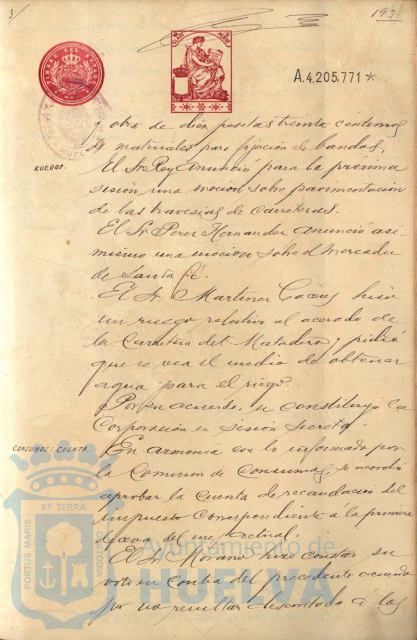 193
A.4.205.771*
TIMBRE DEL ESTADO
y otra de diez pesetas treinta centimos
de materiales para fijación de bandos,
RUEGOS.
El Sr. Rey anunció para la próxima
sesión una moción sobre pavimentación
de las travesias de carreteras.
El Sr. Perez Hernandez anunció asi
mismo una mocion sobre el mercado
de Santa Fé.
El Sr. Martinez hizo
un ruego relativo al acerado de
la Carretera del Matadero; pidió
que se vea el medio de obtener
agua para el riego.
Por un acuerdo, se constituyó la
Corporación en sesión secreta.
CONSUMOS: CUENTA
En armonia con lo informado por
la Comision de Consumos, se acordó
aprobar la cuenta de recaudación del
impuesto correspondiente a la primera
decena del mes actual.
El Sr. Morano hizo constar su
voto en contra del precedente acuerdo
por no resultar descontado a los
PORTUS MARIS ET TERRÆ CUSTODIA
Ayuntamiento de
HUELVA